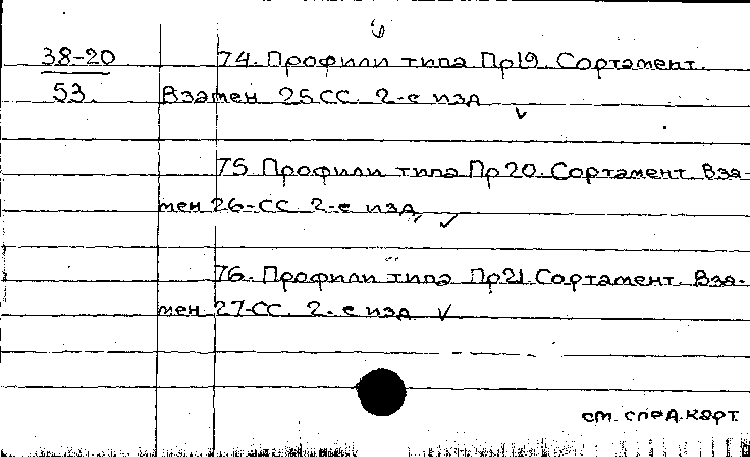 6
38-20 74. Профили типа Пр19. Сортамент.
53. Взамен 25СС. 2-е изд
75 Профили типа Пр20. Сортамент. Вза-
мен 26-СС 2-е изд,
76. Профили типа Пр21. Сортамент. Вза-
мен 27-СС. 2-е изд
см. след. карт